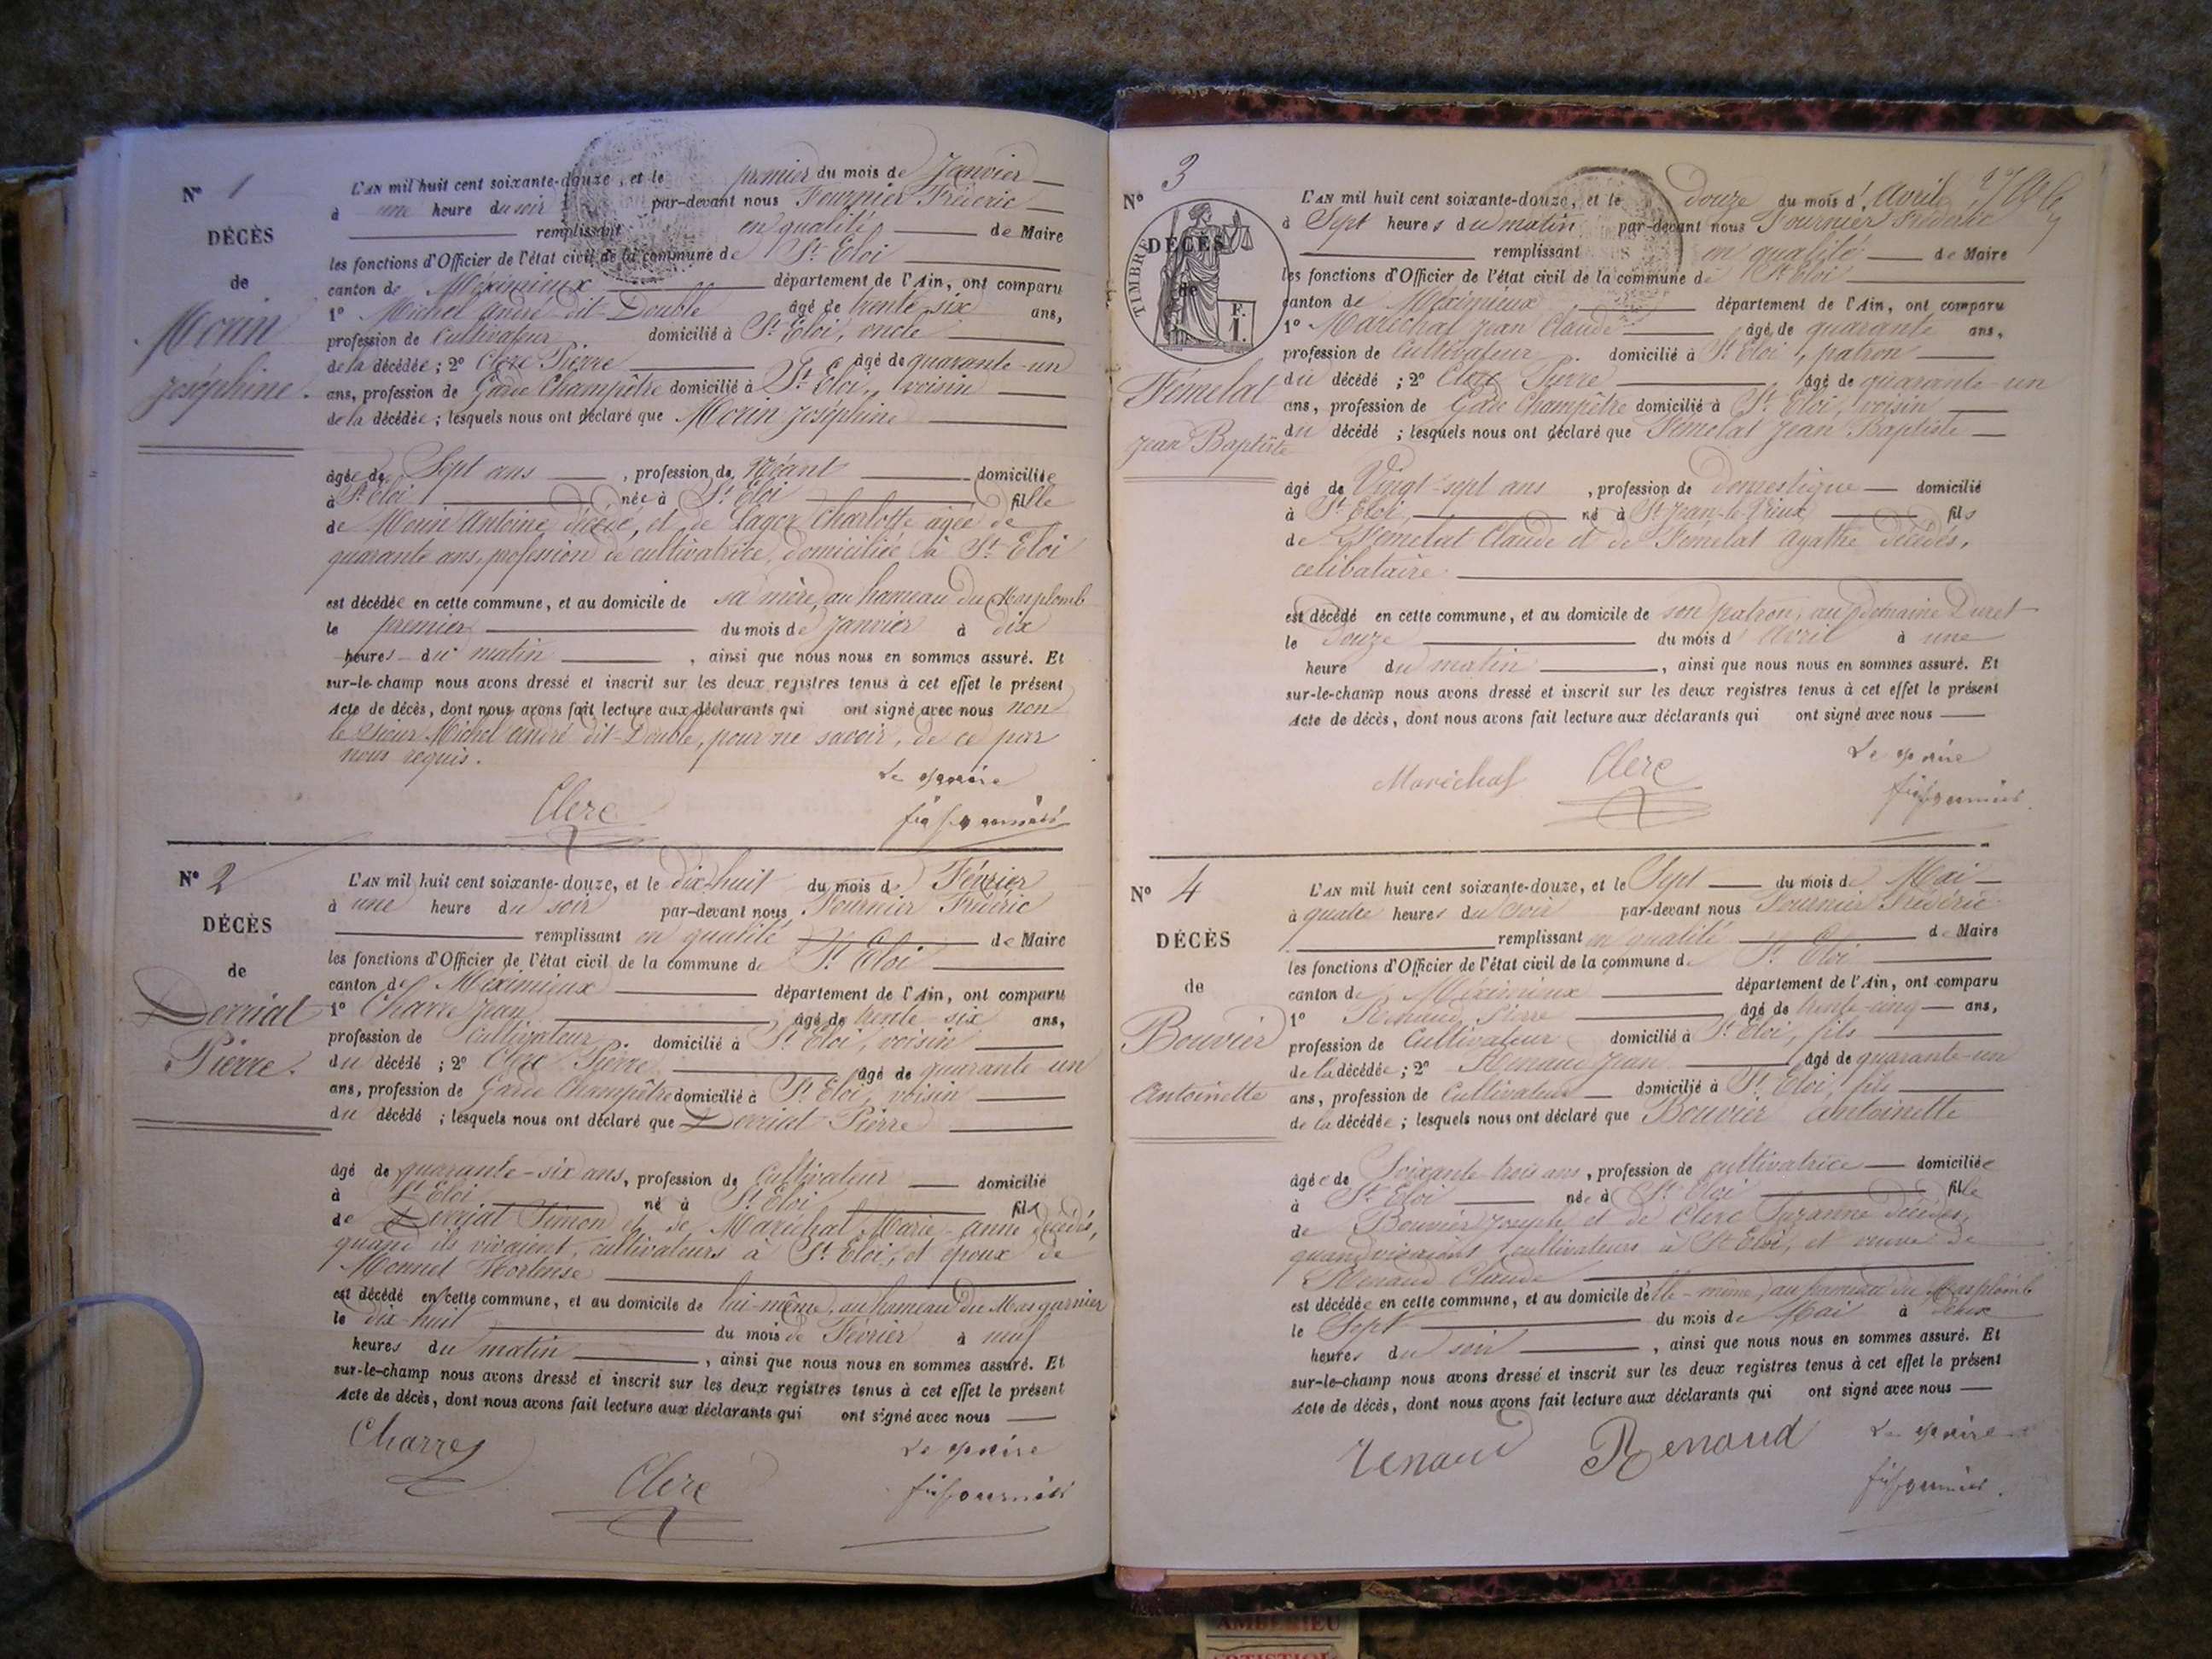 N° 1
DÉCÈS
de
Morin
Joséphine.
L'AN mil huit cent soixante-douze, et le premier du mois de Janvier
à une heure du soir par-devant nous Fournier Fréderic
remplissant en qualité de Maire
les fonctions d'Officier de l'état civil de la commune de St Eloi
canton de Méximieux département de l'Ain, ont comparu
1° Michel André dit Double âgé de trente six ans,
profession de Cultivateur domicilié à St Eloi, oncle
de la décédée ; 2° Clerc Pierre âgé de quarante-un
ans, profession de Garde Champêtre domicilié à St Eloi, voisin
de la décédée ; lesquels nous ont déclaré que Morin Joséphine
âgée de Sept ans , profession de Néant domiciliée
à St Eloi née à St Eloi fille
de Morin Antoine décédé, et de Lager Charlotte âgée de
quarante ans, profession de cultivatrice, domiciliée à St Eloi
est décédée en cette commune, et au domicile de sa mère, au hameau du Masplomb
le premier du mois de Janvier à dix
heures du matin , ainsi que nous nous en sommes assuré. Et
sur-le-champ nous avons dressé et inscrit sur les deux registres tenus à cet effet le présent
Acte de décès, dont nous avons fait lecture aux déclarants qui ont signé avec nous non
le Sieur Michel André dit Double, pour ne savoir, de ce par
nous requis.
Le Maire
Clerc
N° 2
DÉCÈS
de
Derriat
Pierre.
L'AN mil huit cent soixante-douze, et le dix-huit du mois de Février
à une heure du soir par-devant nous Fournier Fréderic
remplissant en qualité de Maire
les fonctions d'Officier de l'état civil de la commune de St Eloi
canton de Méximieux département de l'Ain, ont comparu
1° Charre Jean âgé de trente-six ans,
profession de Cultivateur domicilié à St Eloi, voisin
du décédé ; 2° Clerc Pierre âgé de quarante-un
ans, profession de Garde Champêtre domicilié à St Eloi, voisin
du décédé ; lesquels nous ont déclaré que Derriat Pierre
âgé de quarante-six ans, profession de Cultivateur domicilié
à St Eloi né à St Eloi fils
de Derriat Simon et de Maréchal Marie-anne décédés,
quand ils vivaient, cultivateurs à St Eloi, et époux de
Monnet Hortense
est décédé en cette commune, et au domicile de lui-même, au hameau du Mas garnier
le dix-huit du mois de Février à neuf
heures du matin , ainsi que nous nous en sommes assuré. Et
sur-le-champ nous avons dressé et inscrit sur les deux registres tenus à cet effet le présent
Acte de décès, dont nous avons fait lecture aux déclarants qui ont signé avec nous
Charre
Le Maire
Clerc
fr fournier
N° 3
DÉCÈS
de
TIMBRE
F.
I.
Fémelat
Jean Baptiste
L'AN mil huit cent soixante-douze, et le douze du mois d'Avril
à Sept heures du matin par-devant nous Fournier Fréderic
remplissant en qualité de Maire
les fonctions d'Officier de l'état civil de la commune de St Eloi
canton de Méximieux département de l'Ain, ont comparu
1° Maréchal Jean Claude âgé de quarante ans,
profession de Cultivateur domicilié à St Eloi, patron
du décédé ; 2° Clerc Pierre âgé de quarante-un
ans, profession de Garde Champêtre domicilié à St Eloi, voisin
du décédé ; lesquels nous ont déclaré que Fémelat Jean Baptiste
âgé de Vingt-sept ans , profession de domestique domicilié
à St Eloi, né à St Jean-le-Vieux fils
de Fémelat Claude et de Fémelat Agathe décédés,
célibataire
est décédé en cette commune, et au domicile de son patron, au domaine Duret
le Douze du mois d'Avril à une
heure du matin , ainsi que nous nous en sommes assuré. Et
sur-le-champ nous avons dressé et inscrit sur les deux registres tenus à cet effet le présent
Acte de décès, dont nous avons fait lecture aux déclarants qui ont signé avec nous
Le Maire
Maréchal Clerc
fr fournier
N° 4
DÉCÈS
de
Bouvier
Antoinette
L'AN mil huit cent soixante-douze, et le Sept du mois de Mai
à quatre heures du soir par-devant nous Fournier Frédéric
remplissant en qualité de Maire
les fonctions d'Officier de l'état civil de la commune de St Eloi
canton de Méximieux département de l'Ain, ont comparu
1° Renaud Pierre âgé de trente-cinq ans,
profession de Cultivateur domicilié à St Eloi, fils
de la décédée ; 2° Renaud Jean âgé de quarante-un
ans, profession de Cultivateur domicilié à St Eloi, fils
de la décédée ; lesquels nous ont déclaré que Bouvier Antoinette
âgée de Soixante trois ans , profession de cultivatrice domiciliée
à St Eloi née à St Eloi fille
de Bouvier Joseph et de Clerc Suzanne décédés,
quand vivaient cultivateurs à St Eloi, et veuve de
Renaud Claude
est décédée en cette commune, et au domicile d'elle-même, au hameau du Masplomb
le Sept du mois de Mai à deux
heures du soir , ainsi que nous nous en sommes assuré. Et
sur-le-champ nous avons dressé et inscrit sur les deux registres tenus à cet effet le présent
Acte de décès, dont nous avons fait lecture aux déclarants qui ont signé avec nous
Le Maire
renaud Renaud
fr fournier.
AMBERIEU